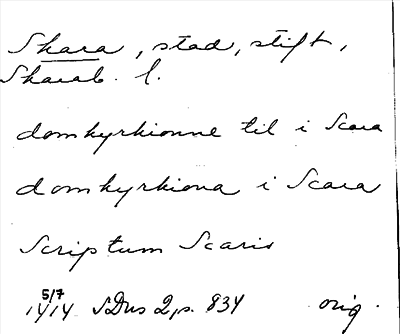 Skara, stad, stift,
Skarab. l.
domkyrkionne til i Scara
domkyrkiona i Scara
Scriptum Scaris
5/7
1414 SDns 2, s. 834 orig.